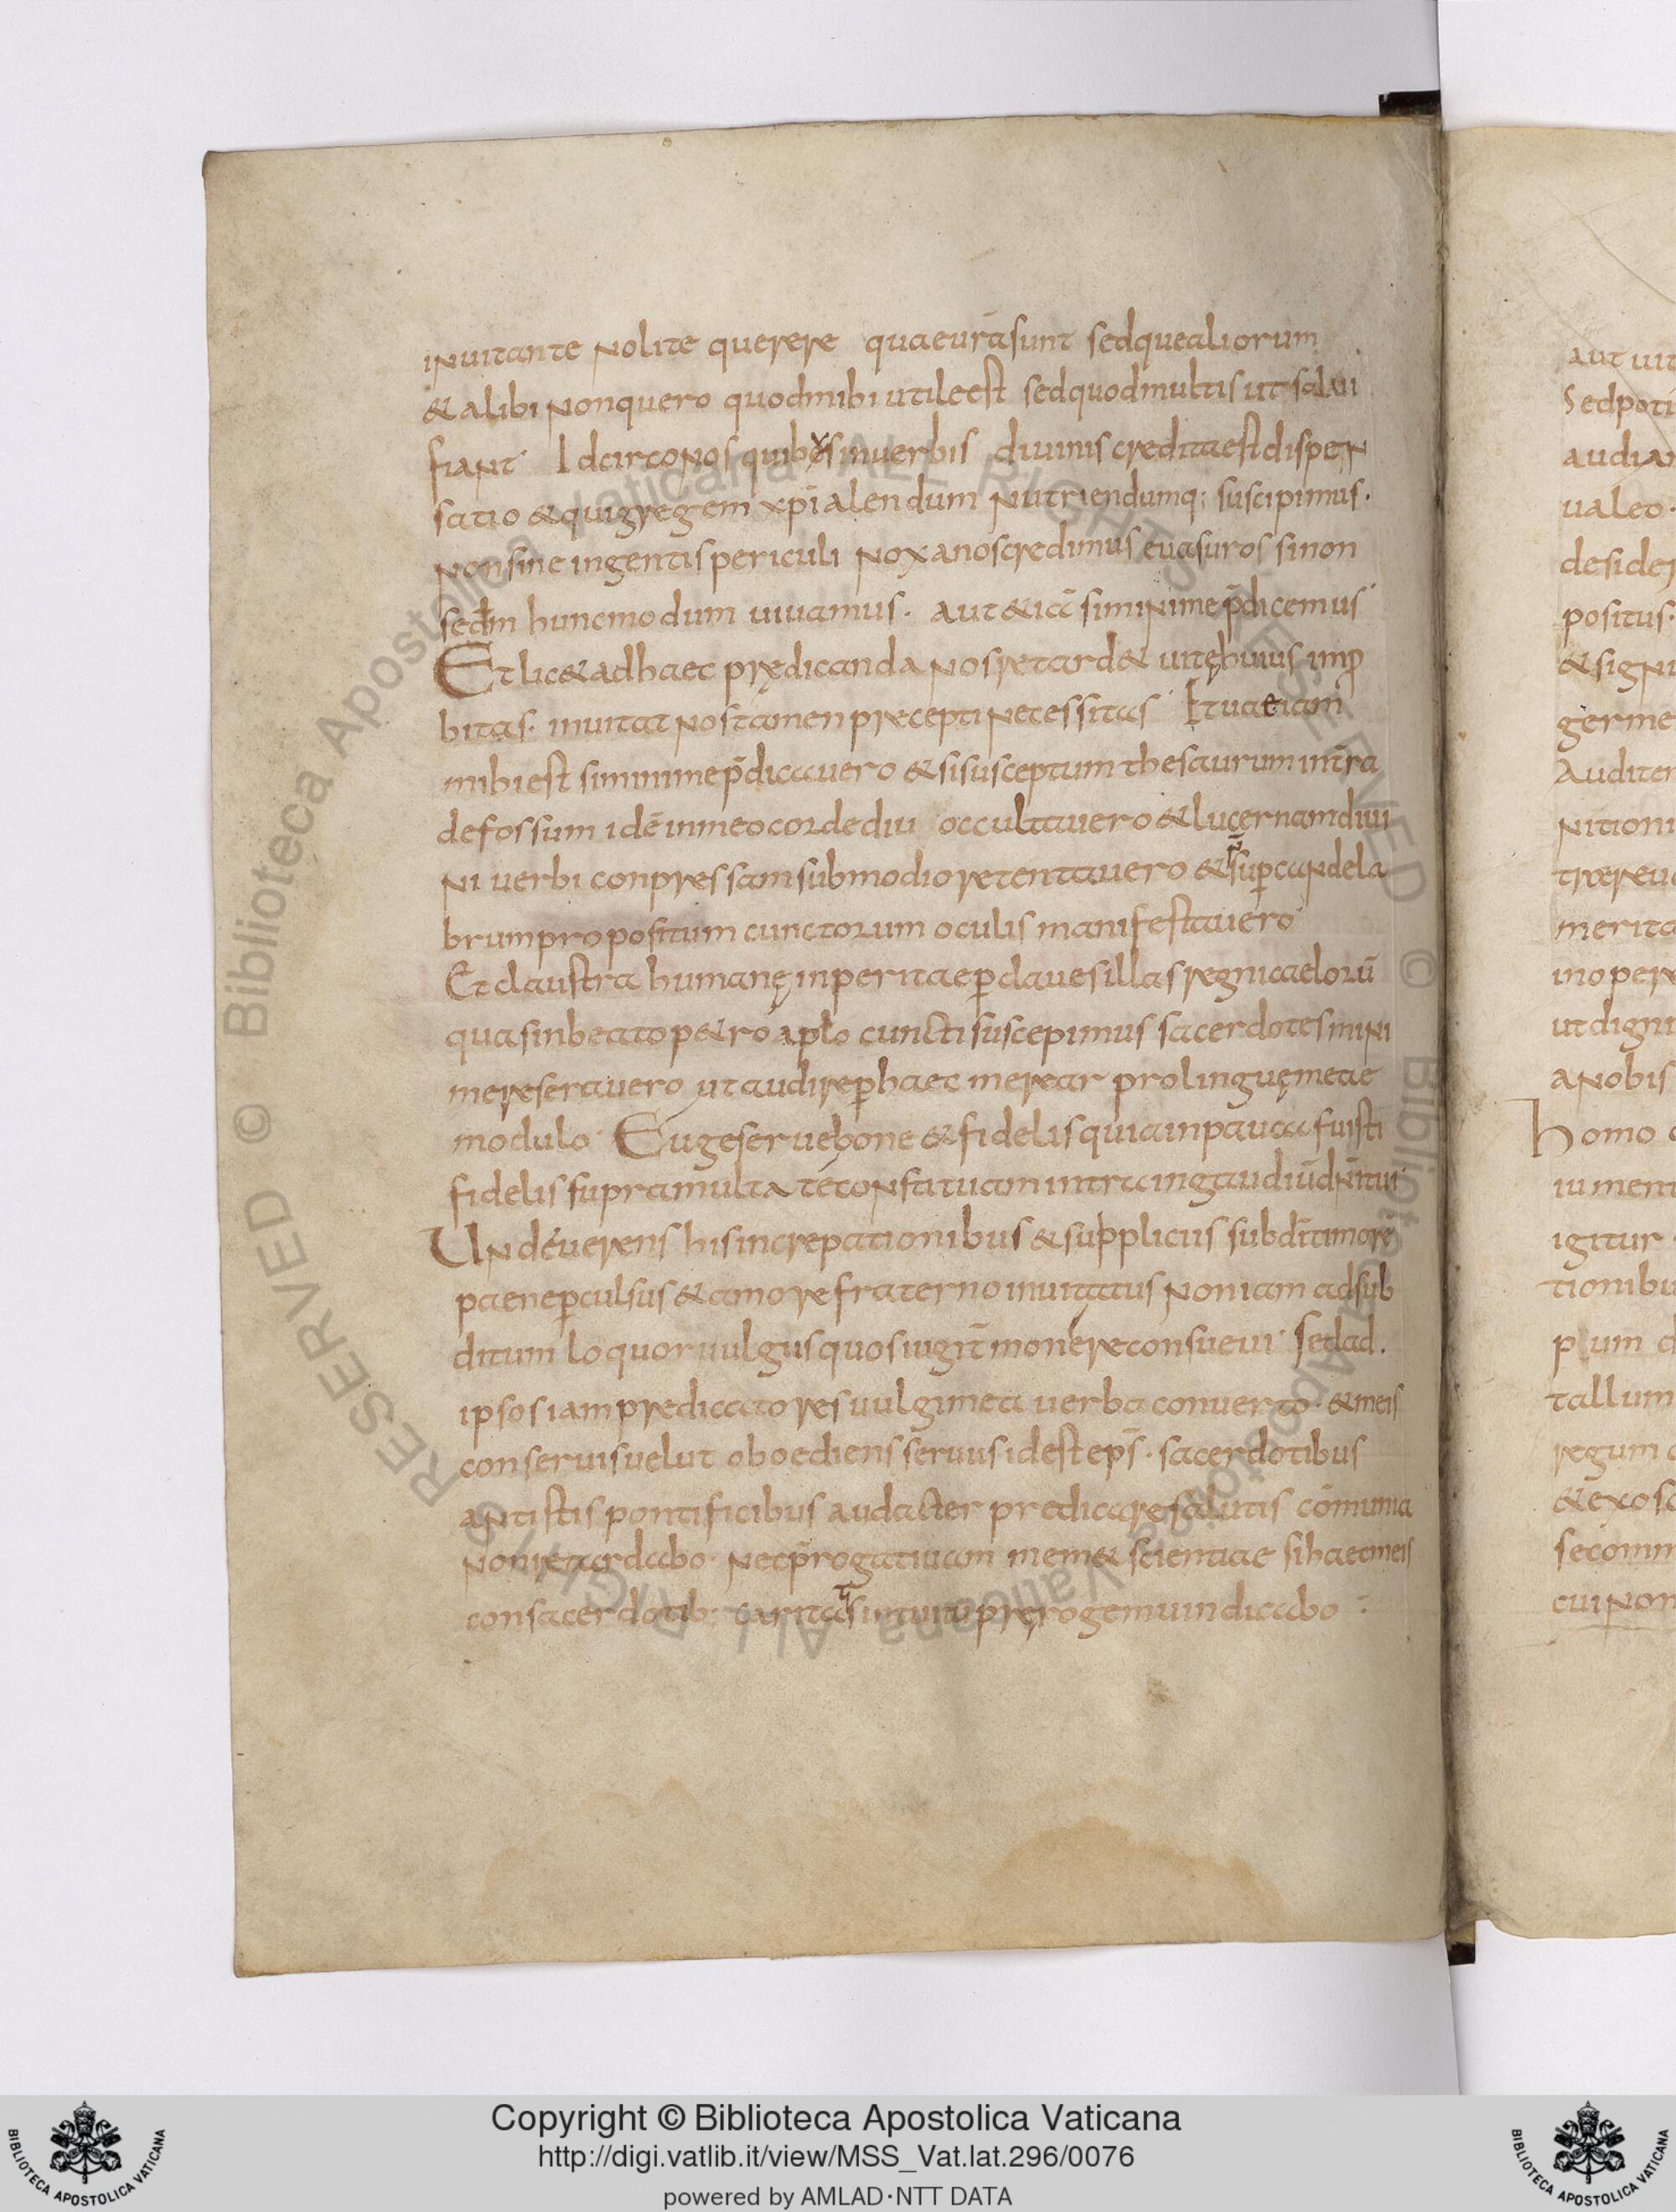 inuitante nolite querere quae urã sunt sed que aliorum
& alibi non quero quod mihi utile est sed quod multis ut salui
fiant Idcirco nos quibus in uerbis diuinis credita est dispen
satio & qui gregem xpĩ alendum nutriendumq; suscipimus.
non sine ingentis periculi noxa nos credimus euasuros si non
sedm hunc modum uiuamus. aut & iã si minime p̄dicemus
Et lic& ad haec prędicanda nos retard& uitę huius imp
bitas. inuitat nos tamen precepti necessitas
mihi est si minime p̄dicauero & si susceptum thesaurum intra
defossum idẽ in meo corde diu occultauero & lucernam diui
ni uerbi conpressam sub modio retentauero & sup candela
brum propositum cunctorum oculis manifestauero
Et claustra humanę inpernae p claues illas regni caelorũ
quas in beato p&ro aplo cuncti suscepimus sacerdotes mini
me reserauero ut audire p haec merear pro linguę meae
modulo Euge serue bone & fidelis quia in pauca fuisti
fidelis supra multa te constituam intra in gaudiũ dñi tui
Unde uerens his increpationibus & suppliciis subdi timore
paene pculsus & amore fraterno inuitatus non iam ad sub
ditum loquor uulgus quos iugit̃ monere consueui Sed ad.
ipsos iam predicatores uulgi mea uerba conuerto. & meis
conseruis uelut oboediens seruus id est ep̄s. sacerdotibus
antistis pontificibus audacter predicare salutis cõmunia
non retardabo. nec p̄rogatiuam mem& scientiae si haec meis
consacerdotib: caritatis intuitu prerogem uindicabo :
Copyright © Biblioteca Apostolica Vaticana
http://digi.vatlib.it/view/MSS_Vat.lat.296/0076
powered by AMLAD·NTT DATA
BIBLIOTECA APOSTOLICA VATICANA
BIBLIOTECA APOSTOLICA VATICANA